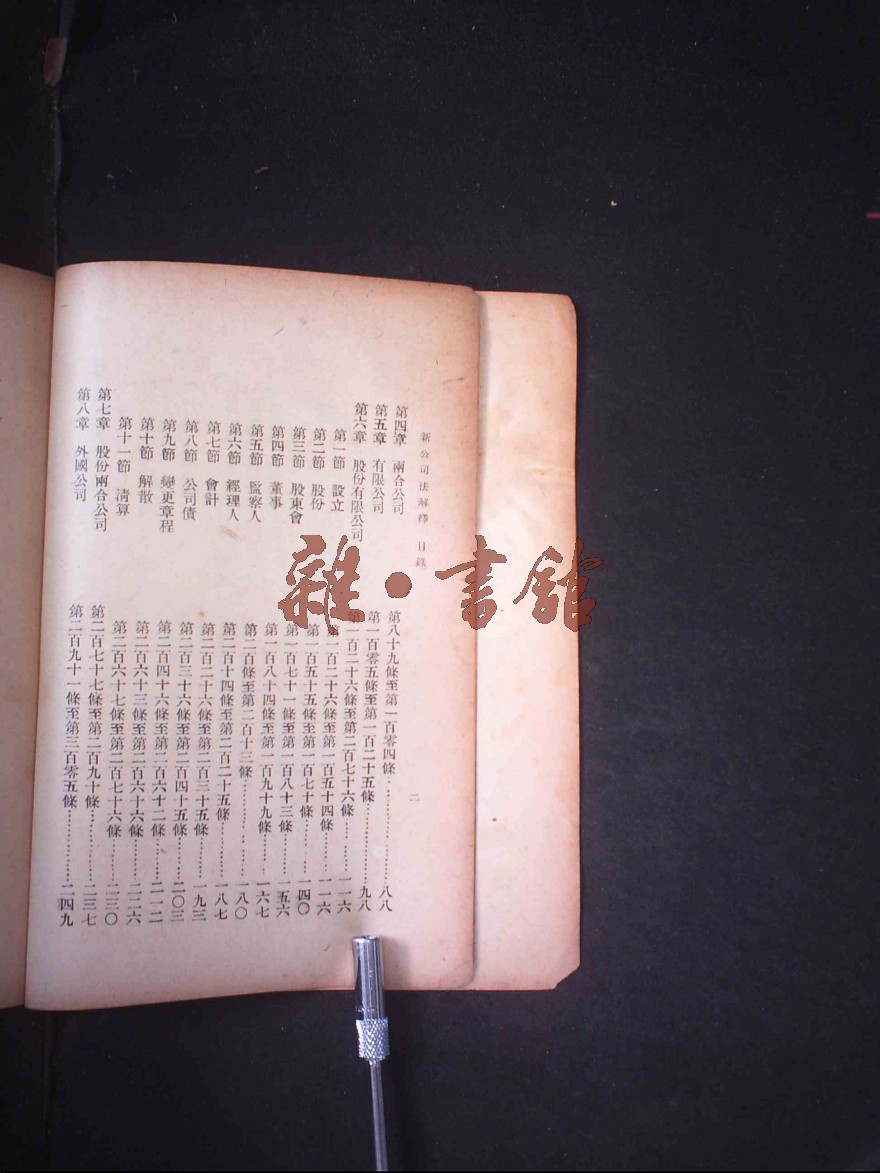 新公司法解釋 目錄
二
第四章 兩合公司 第八十九條至第一百零四條……………八八
第五章 有限公司 第一百零五條至第一百二十五條…………九八
第六章 股份有限公司 第一百二十六條至第二百七十六條……一一六
第一節 設立 第一百二十六條至第一百五十四條……一一六
第二節 股份 第一百五十五條至第一百七十條……一四〇
第三節 股東會 第一百七十一條至第一百八十三條……一五六
第四節 董事 第一百八十四條至第一百九十九條……一六七
第五節 監察人 第二百條至第二百十三條…………一八〇
第六節 經理人 第二百十四條至第二百二十五條………一八七
第七節 會計 第二百二十六條至第二百三十五條……一九三
第八節 公司債 第二百三十六條至第二百四十五條……二〇三
第九節 變更章程 第二百四十六條至第二百六十二條……二一二
第十節 解散 第二百六十三條至第二百六十六條……二二六
第十一節 清算 第二百六十七條至第二百七十六條……二三〇
第七章 股份兩合公司 第二百七十七條至第二百九十條………二三七
第八章 外國公司 第二百九十一條至第三百零五條…………二四九
雜·書館